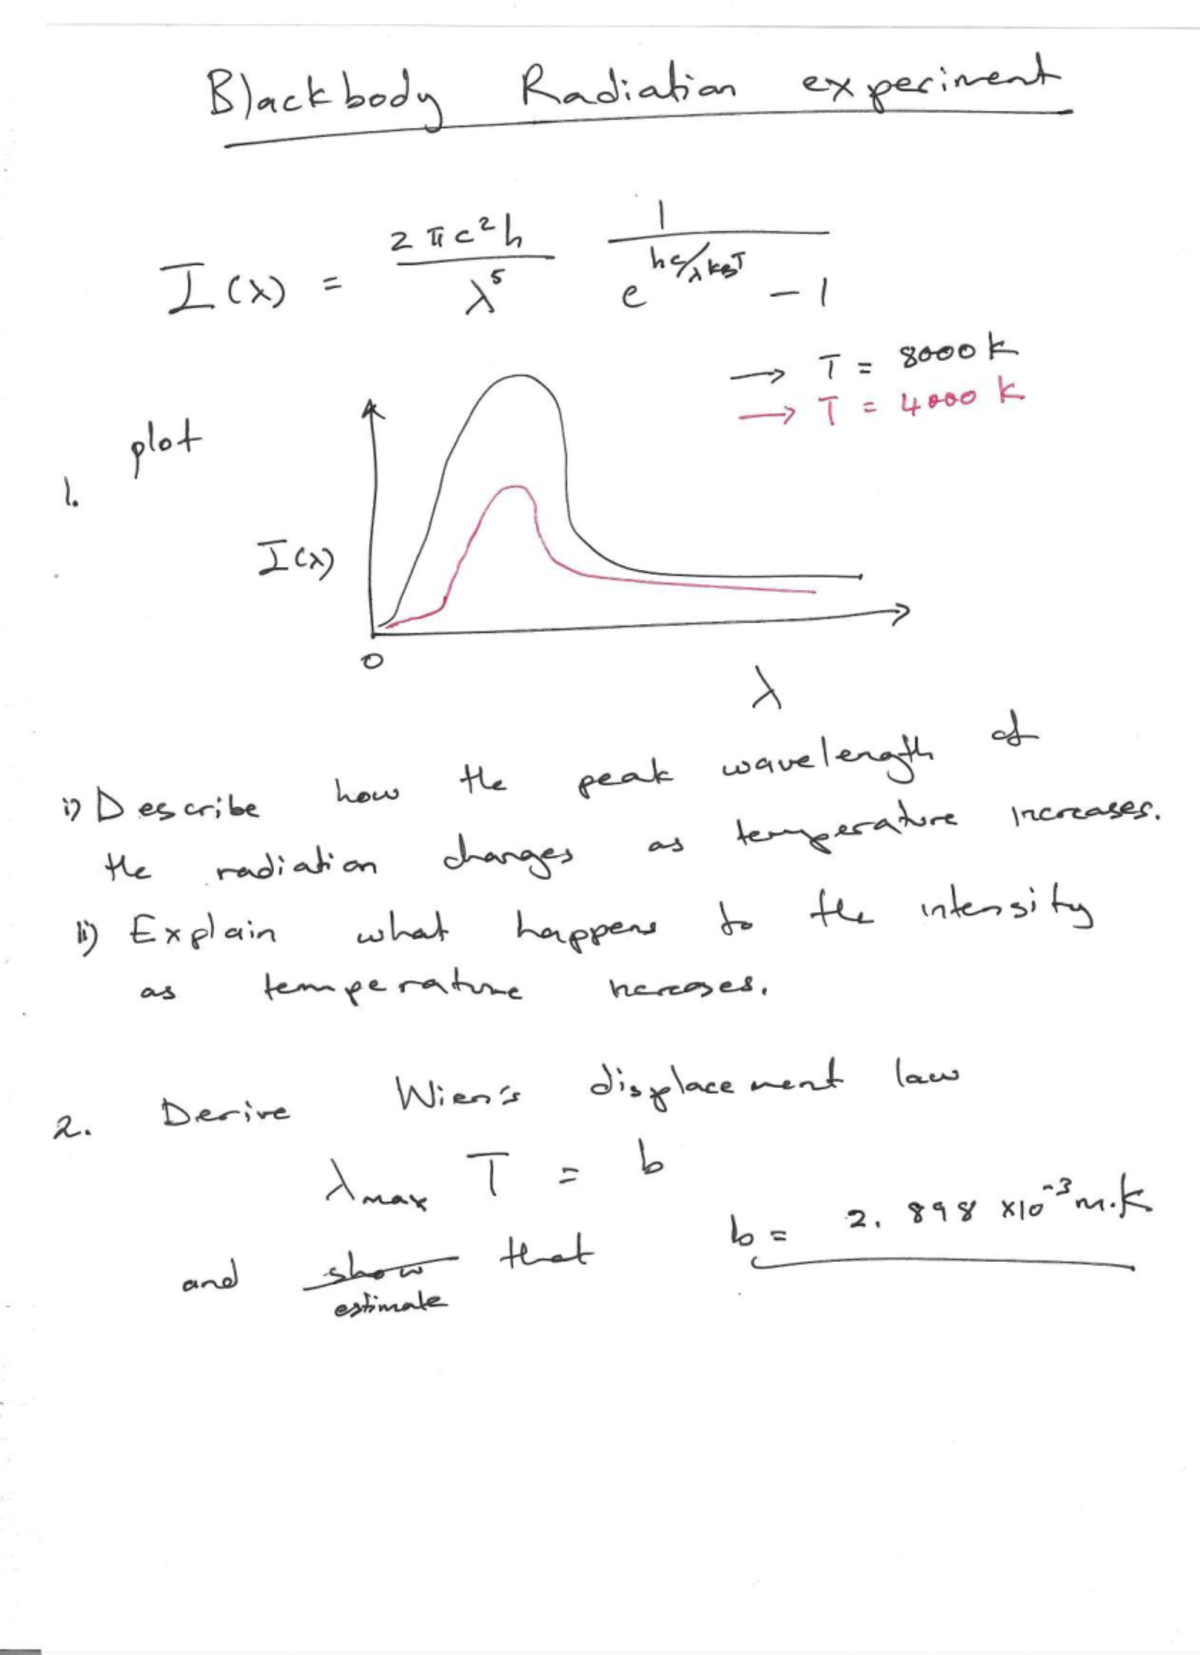 Blackbody Radiation experiment
I(λ) = 2πc²h / λ⁵ 1 / e^(hc/λk_BT) - 1
→ T = 8000 k
→ T = 4000 k
1. plot
I(λ)
0
λ
i) Describe how the peak wavelength of
the radiation changes as temperature increases.
ii) Explain what happens to the intensity
as temperature increases.
2. Derive Wien's displacement law
λmax T = b
and show that b = 2.898 ×10⁻³ m.K
estimate